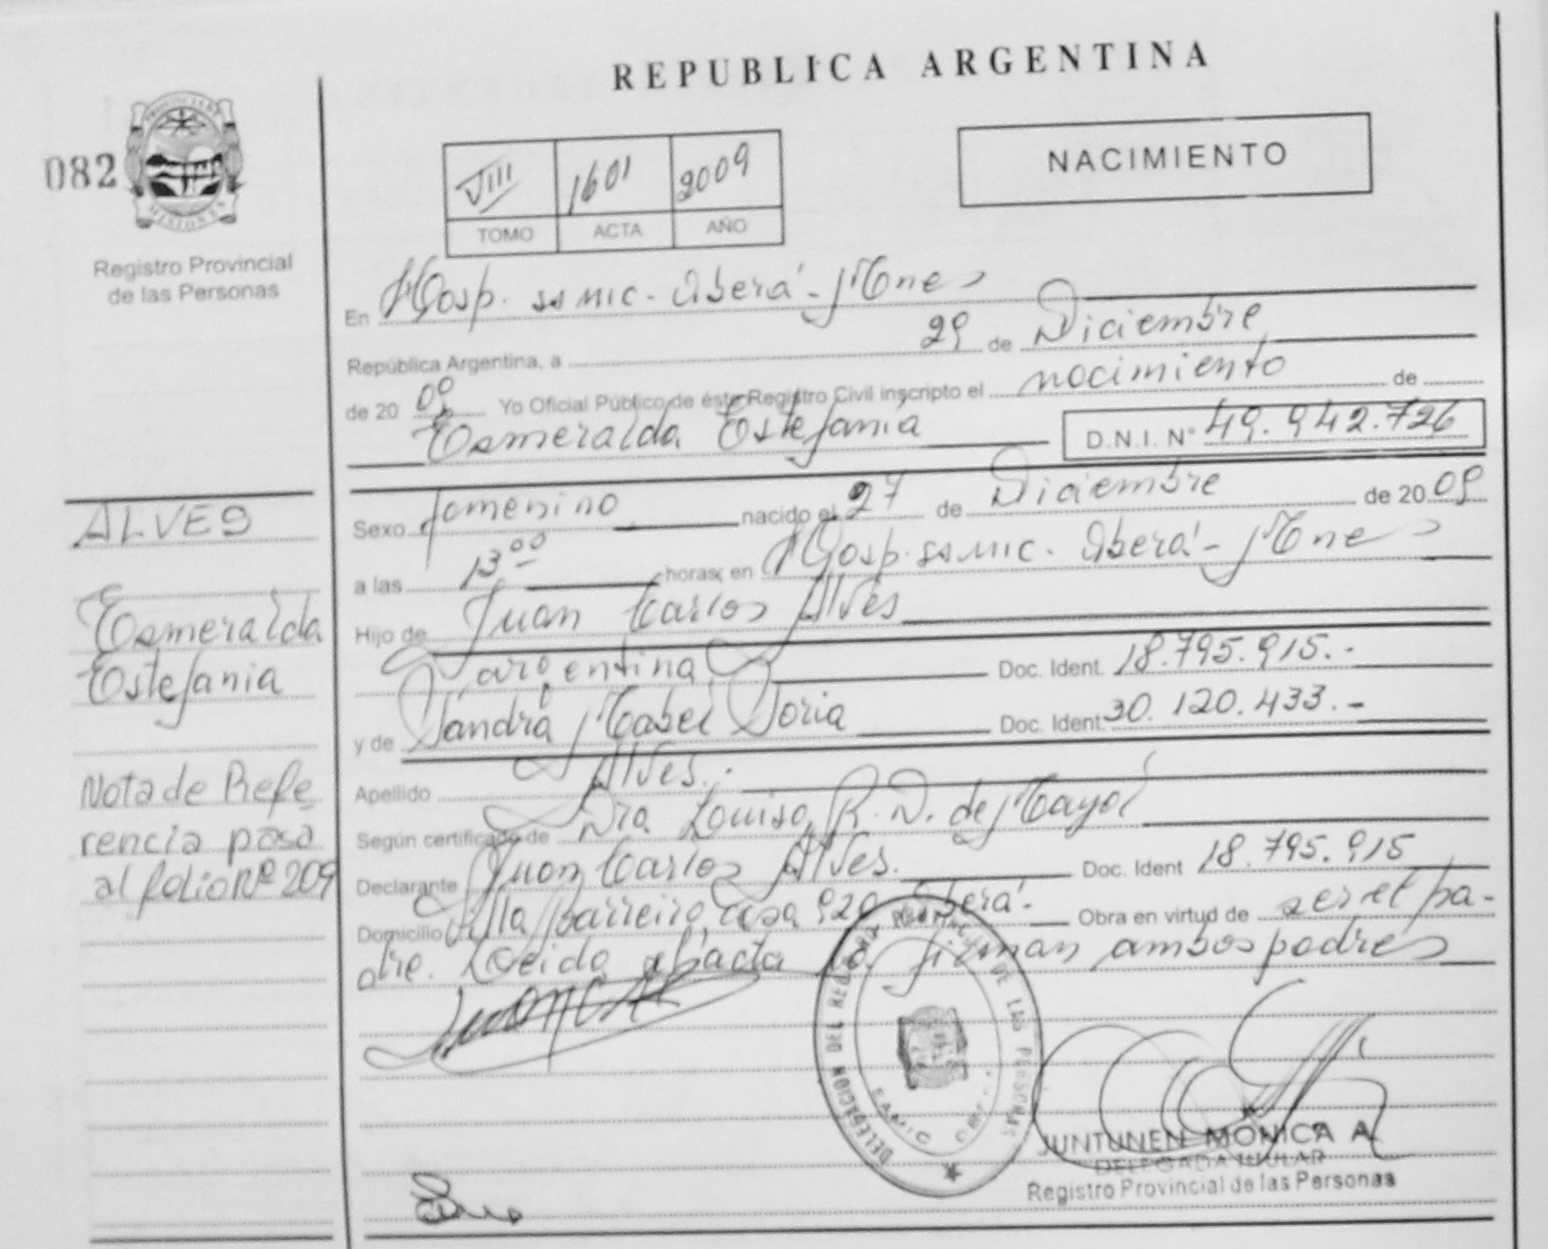 REPUBLICA ARGENTINA
082
PROVINCIA DE
MISIONES
Registro Provincial
de las Personas
VIII 1601 2009
TOMO ACTA AÑO
NACIMIENTO
En Hosp. ss MIC. Oberá - Mnes
República Argentina, a 29 de Diciembre
de 2009 Yo Oficial Público de éste Registro Civil inscripto el nacimiento de
Esmeralda Estefania D.N.I. Nº 49.942.726
ALVES
Esmeralda
Estefania
Nota de Refe
rencia pasa
al folio Nº 209
Sexo femenino nacido el 27 de Diciembre de 2009
a las 13 00 horas; en Hosp. ss MIC. Oberá - Mnes
Hijo de Juan Carlos Alves
argentina Doc. Ident. 18.795.915.-
y de Sandra Mabel Doria Doc. Ident. 30.120.433.-
Apellido Alves.-
Según certificado de Dra Louisa R. D. de Mayol
Declarante Juan Carlos Alves. Doc. Ident 18.795.915
Domicilio Villa Barreiro, casa 920 Oberá. Obra en virtud de ser el pa-
dre. Leida el acta la firman ambos padres
DELEGACION DEL REGISTRO PROVINCIAL DE LAS PERSONAS
SAMIC
JUNTUNEN MONICA A.
DELEGADA TITULAR
Registro Provincial de las Personas